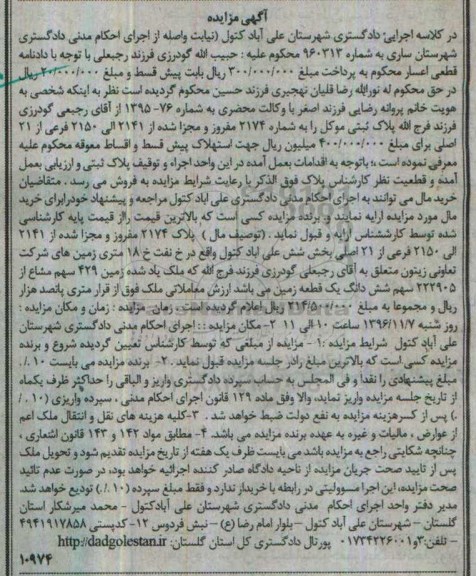 آگهی مزایده
در کلاسه اجرایی: دادگستری شهرستان علی آباد کتول (نیابت واصله از اجرای احکام مدنی دادگستری
شهرستان ساری به شماره ۹۶۰۳۱۳ محکوم علیه : حبیب الله گودرزی فرزند رجبعلی با توجه با دادنامه
قطعی اعسار محکوم به پرداخت مبلغ ۳۰۰/۰۰۰/۰۰۰ ریال بابت پیش قسط و مبلغ ۲۰/۰۰۰/۰۰۰ ریال
در حق محکوم له نورالله رضا قلیان تهجیری فرزند حسین محکوم گردیده است نظر به اینکه شخصی به
هویت خانم پروانه رضایی فرزند اصغر با وکالت محضری به شماره ۷۶- ۱۳۹۵ از آقای رجبعی گودرزی
فرزند فرج الله پلاک ثبتی موکل را به شماره ۲۱۷۴ مفروز و مجزا شده از ۲۱۴۱ الی ۲۱۵۰ فرعی از ۲۱
اصلی برای مبلغ ۴۰۰/۰۰۰/۰۰۰ میلیون ریال جهت استهلاک پیش قسط و اقساط معوقه محکوم علیه
معرفی نموده است ،؛ باتوجه به اقدامات بعمل آمده در این واحد اجراء و توقیف پلاک ثبتی و ارزیابی بعمل
آمده و قطعیت نظر کارشناس پلاک فوق الذکر با رعایت شرایط مزایده به فروش می رسد . متقاضیان
خرید مال می توانند به اجرای احکام مدنی دادگستری علی اباد کتول مراجعه و پیشنهاد خودرابرای خرید
مال مورد مزایده ارایه نمایند و برنده مزایده کسی است که بالاترین قیمت راز قیمت پایه کارشناسی
شده توسط کارشناس ارایه و قبول نماید . (توصیف مال ) پلاک ۲۱۷۴ مفروز و مجزا شده از ۲۱۴۱
الی ۲۱۵۰ فرعی از ۲۱ اصلی بخش شش علی اباد کتول واقع در خ نفت خ ۱۸ متری زمین های شرکت
تعاونی زیتون متعلق به آقای رجبعلی گودرزی فرزند فرج الله که ملک یاد شده زمین ۴۲۹ سهم مشاع از
۲۲۳۹۰۵ سهم شش دانگ یک قطعه زمین می باشد ارزش معاملاتی ملک فوق از قرار متری پانصد هزار
ریال و مجموعا به مبلغ ۲۱۴/۵۰۰/۰۰۰ ریال اعلام گردیده است . زمان مزایده : زمان و مکان مزایده :
روز شنبه ۱۳۹۶/۱۱/۷ ساعت ۱۰ الی ۱۱ ۲- مکان مزایده :: اجرای احکام مدنی دادگستری شهرستان
علی آباد کتول شرایط مزایده :۱ - مزایده از مبلغی که توسط کارشناس تعیین گردیده شروع و برنده
مزایده کسی است که بالاترین مبلغ رادر جلسه مزایده قبول نماید . ۲- برنده مزایده می بایست ۱۰ ./
مبلغ پیشنهادی را نقدا و فی المجلس به حساب سپرده دادگستری واریز و الباقی را حداکثر ظرف یکماه
از تاریخ جلسه مزایده واریز نماید، والا وفق ماده ۱۲۹ قانون اجرای احکام مدنی ، سپرده واریزی (۱۰ . /
.) پس از کسرهزینه مزایده به نفع دولت ضبط خواهد شد . ۳-کلیه هزینه های نقل و انتقال ملک اعم
از عوارض ، مالیات و غیره به عهده برنده مزایده می باشد. ۴- مطابق مواد ۱۴۲ و ۱۴۳ قانون اشعاری ،
چنانچه شکایتی راجع به مزایده باشد می بایست ظرف یک هفته از تاریخ مزایده تقدیم شود و تحویل ملک
پس از تایید صحت جریان مزایده از ناحیه دادگاه صادر کننده اجرائیه خواهد بود، در صورت عدم تائید
صحت مزایده، این اجرا مسوولیتی در رابطه با خریدار ندارد و فقط مبلغ سپرده (۱۰./) تودیع خواهد شد.
مدیر دفتر واحد اجرای احکام مدنی دادگستری شهرستان علی آبادکتول - محمد میرشکار استان
گلستان – شهرستان علی آباد کتول – بلوار امام رضا (ع) – نبش فردوس ۱۲- کدپستی ۴۹۴۱۹۱۷۸۵۸
– تلفن:۳و۰۱۷۳۴۲۲۶۰۰۱ پورتال دادگستری کل استان گلستان: http://dadgolestan.ir
۱۰۹۷۴